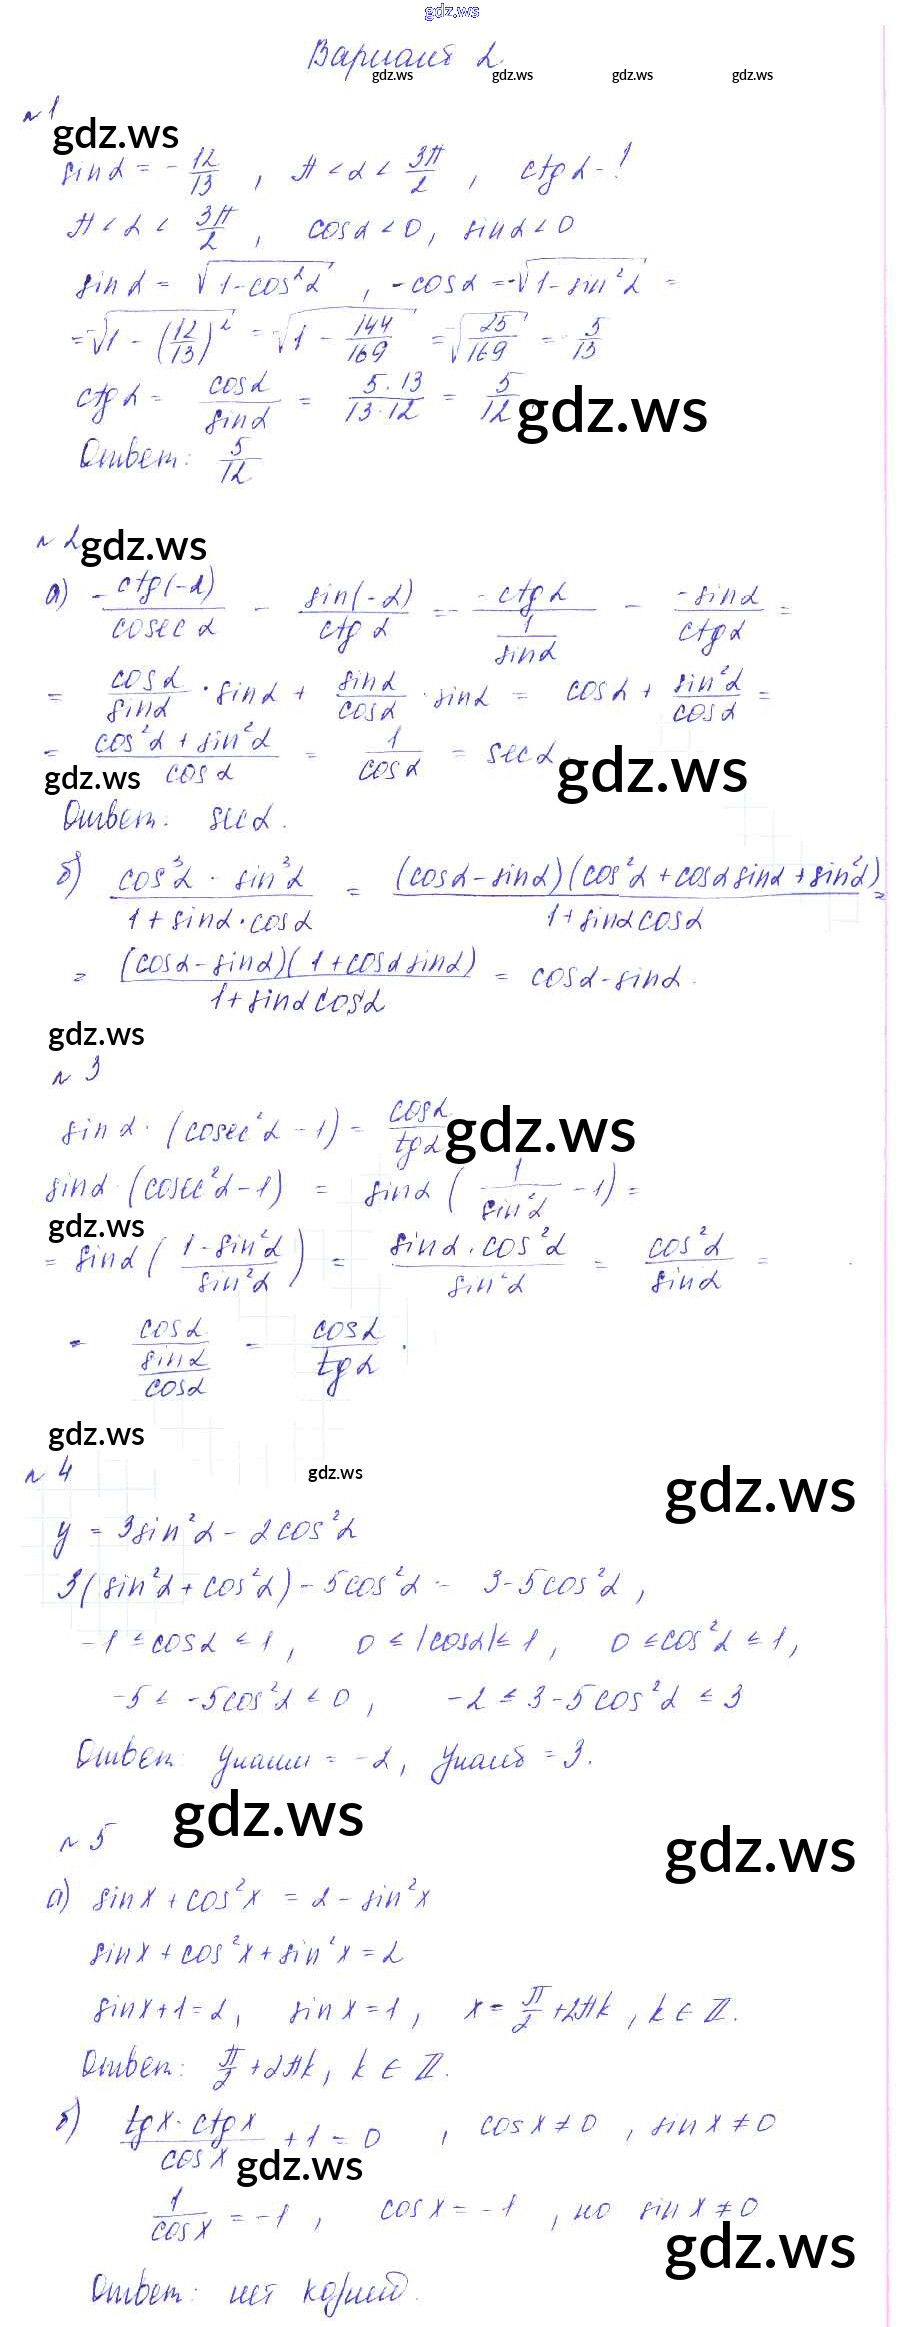 gdz.ws
Вариант 2
gdz.ws gdz.ws gdz.ws gdz.ws
№1
gdz.ws
sinα = -12/13, π < α < 3π/2, ctgα - !
π < α < 3π/2, cosα < 0, sinα < 0
sinα = √(1-cos²α), -cosα = -√(1-sin²α) =
= -√(1-(12/13)²) = -√(1-144/169) = -√(25/169) = -5/13
ctgα = cosα/sinα = 5·13/13·12 = 5/12
gdz.ws
Ответ: 5/12
№2
gdz.ws
а) -ctg(-α)/cosecα - sin(-α)/ctgα = - -ctgα/(1/sinα) - -sinα/ctgα =
= cosα/sinα · sinα + sinα/cosα · sinα = cosα + sin²α/cosα =
= (cos²α + sin²α)/cosα = 1/cosα = secα.
gdz.ws gdz.ws
Ответ: secα.
б) (cos³α · sin³α)/(1+sinα·cosα) = (cosα-sinα)(cos²α+cosαsinα+sin²α)/(1+sinαcosα) =
= (cosα-sinα)(1+cosαsinα)/(1+sinαcosα) = cosα-sinα.
gdz.ws
№3
sinα·(cosec²α-1) = cosα/tgα
gdz.ws
sinα·(cosec²α-1) = sinα(1/sin²α - 1) =
gdz.ws
= sinα((1-sin²α)/sin²α) = sinα·cos²α/sin²α = cos²α/sinα =
= cosα/(sinα/cosα) = cosα/tgα.
gdz.ws
№4
gdz.ws
gdz.ws
y = 3sin²α - 2cos²α
3(sin²α+cos²α) - 5cos²α = 3-5cos²α,
-1 ≤ cosα ≤ 1, 0 ≤ |cosα| ≤ 1, 0 ≤ cos²α ≤ 1,
-5 ≤ -5cos²α ≤ 0, -2 ≤ 3-5cos²α ≤ 3
Ответ: yнаим = -2, yнаиб = 3.
gdz.ws
№5
gdz.ws
а) sinx + cos²x = 2 - sin²x
sinx + cos²x + sin²x = 2
sinx+1=2, sinx=1, x = π/2 + 2πk, k ∈ Z.
Ответ: π/2 + 2πk, k ∈ Z.
б) tgx·ctgx/cosx + 1 = 0, cosx ≠ 0, sinx ≠ 0
gdz.ws
1/cosx = -1, cosx = -1, но sinx ≠ 0
gdz.ws
Ответ: нет корней.